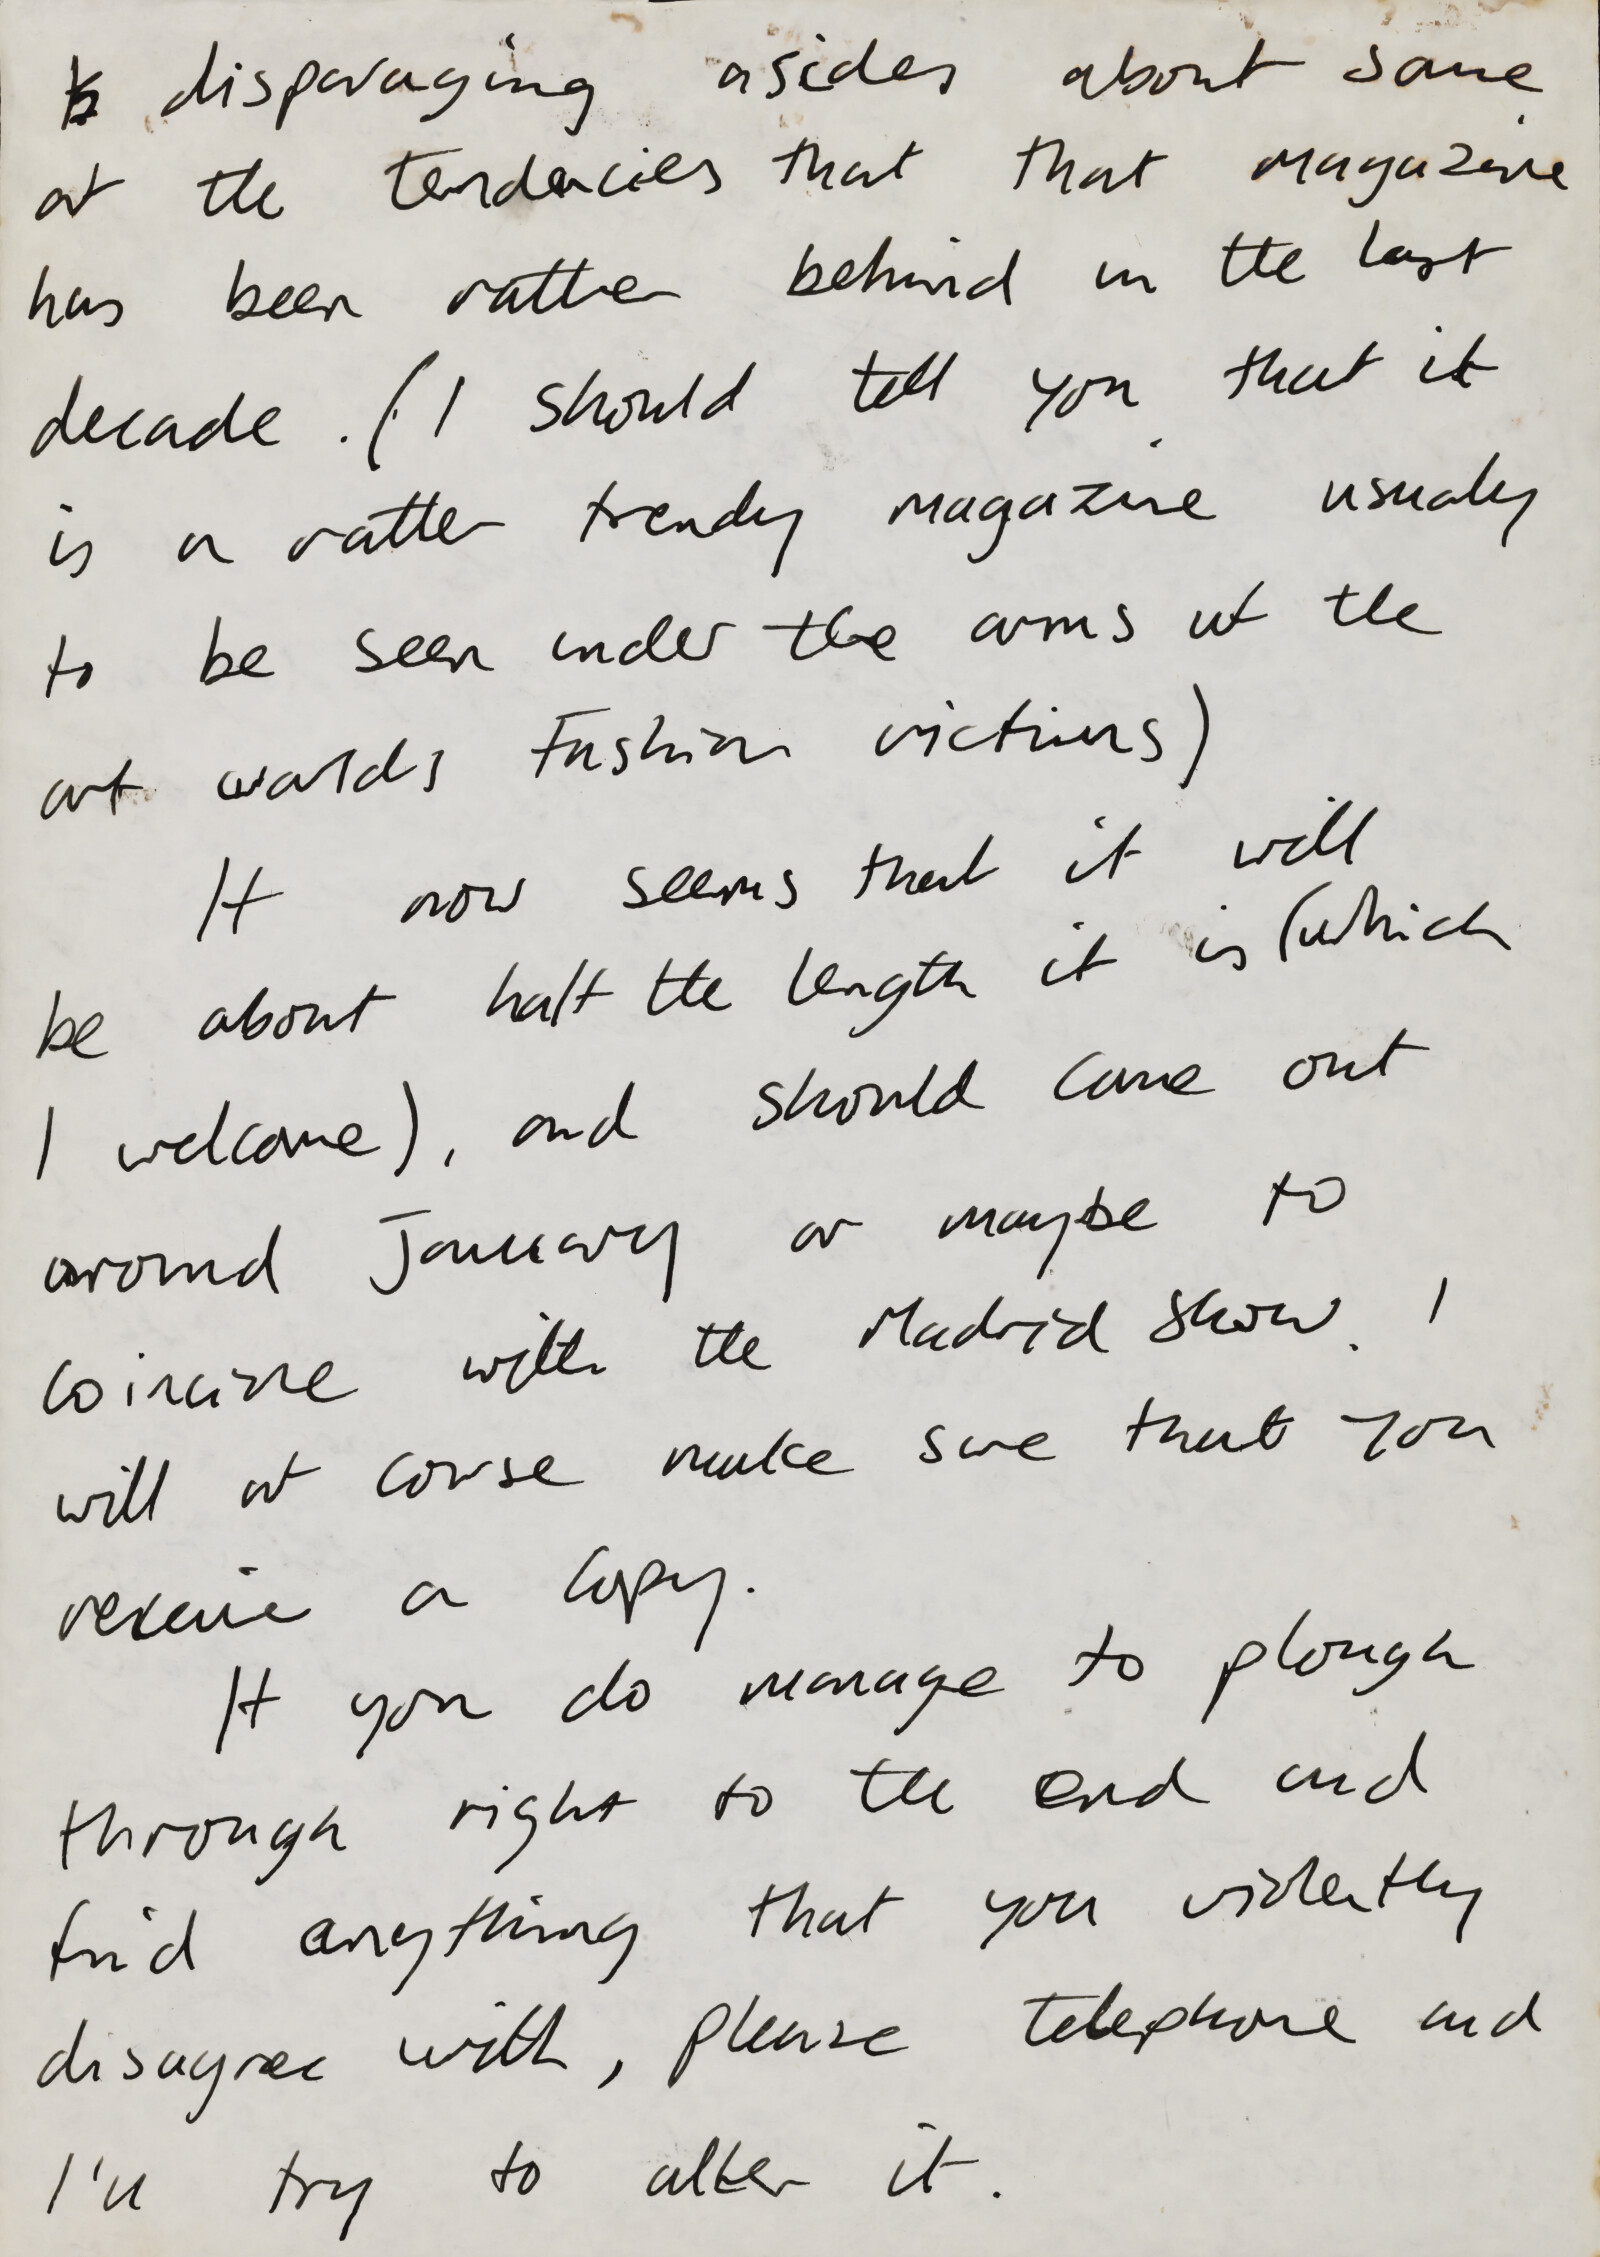 disparaging asides about some
of the tendencies that that magazine
has been rather behind in the last
decade. (I should tell you that it
is a rather trendy magazine usualy
to be seen under the arms of the
art worlds Fashion victims)
It now seems that it will
be about half the length it is (which
I welcome), and should come out
around January or maybe to
coincine with the Madrid show. I
will of course make sure that you
receive a copy.
If you do manage to plough
through right to the end and
find anything that you violently
disagree with, please telephone and
I'll try to alter it.